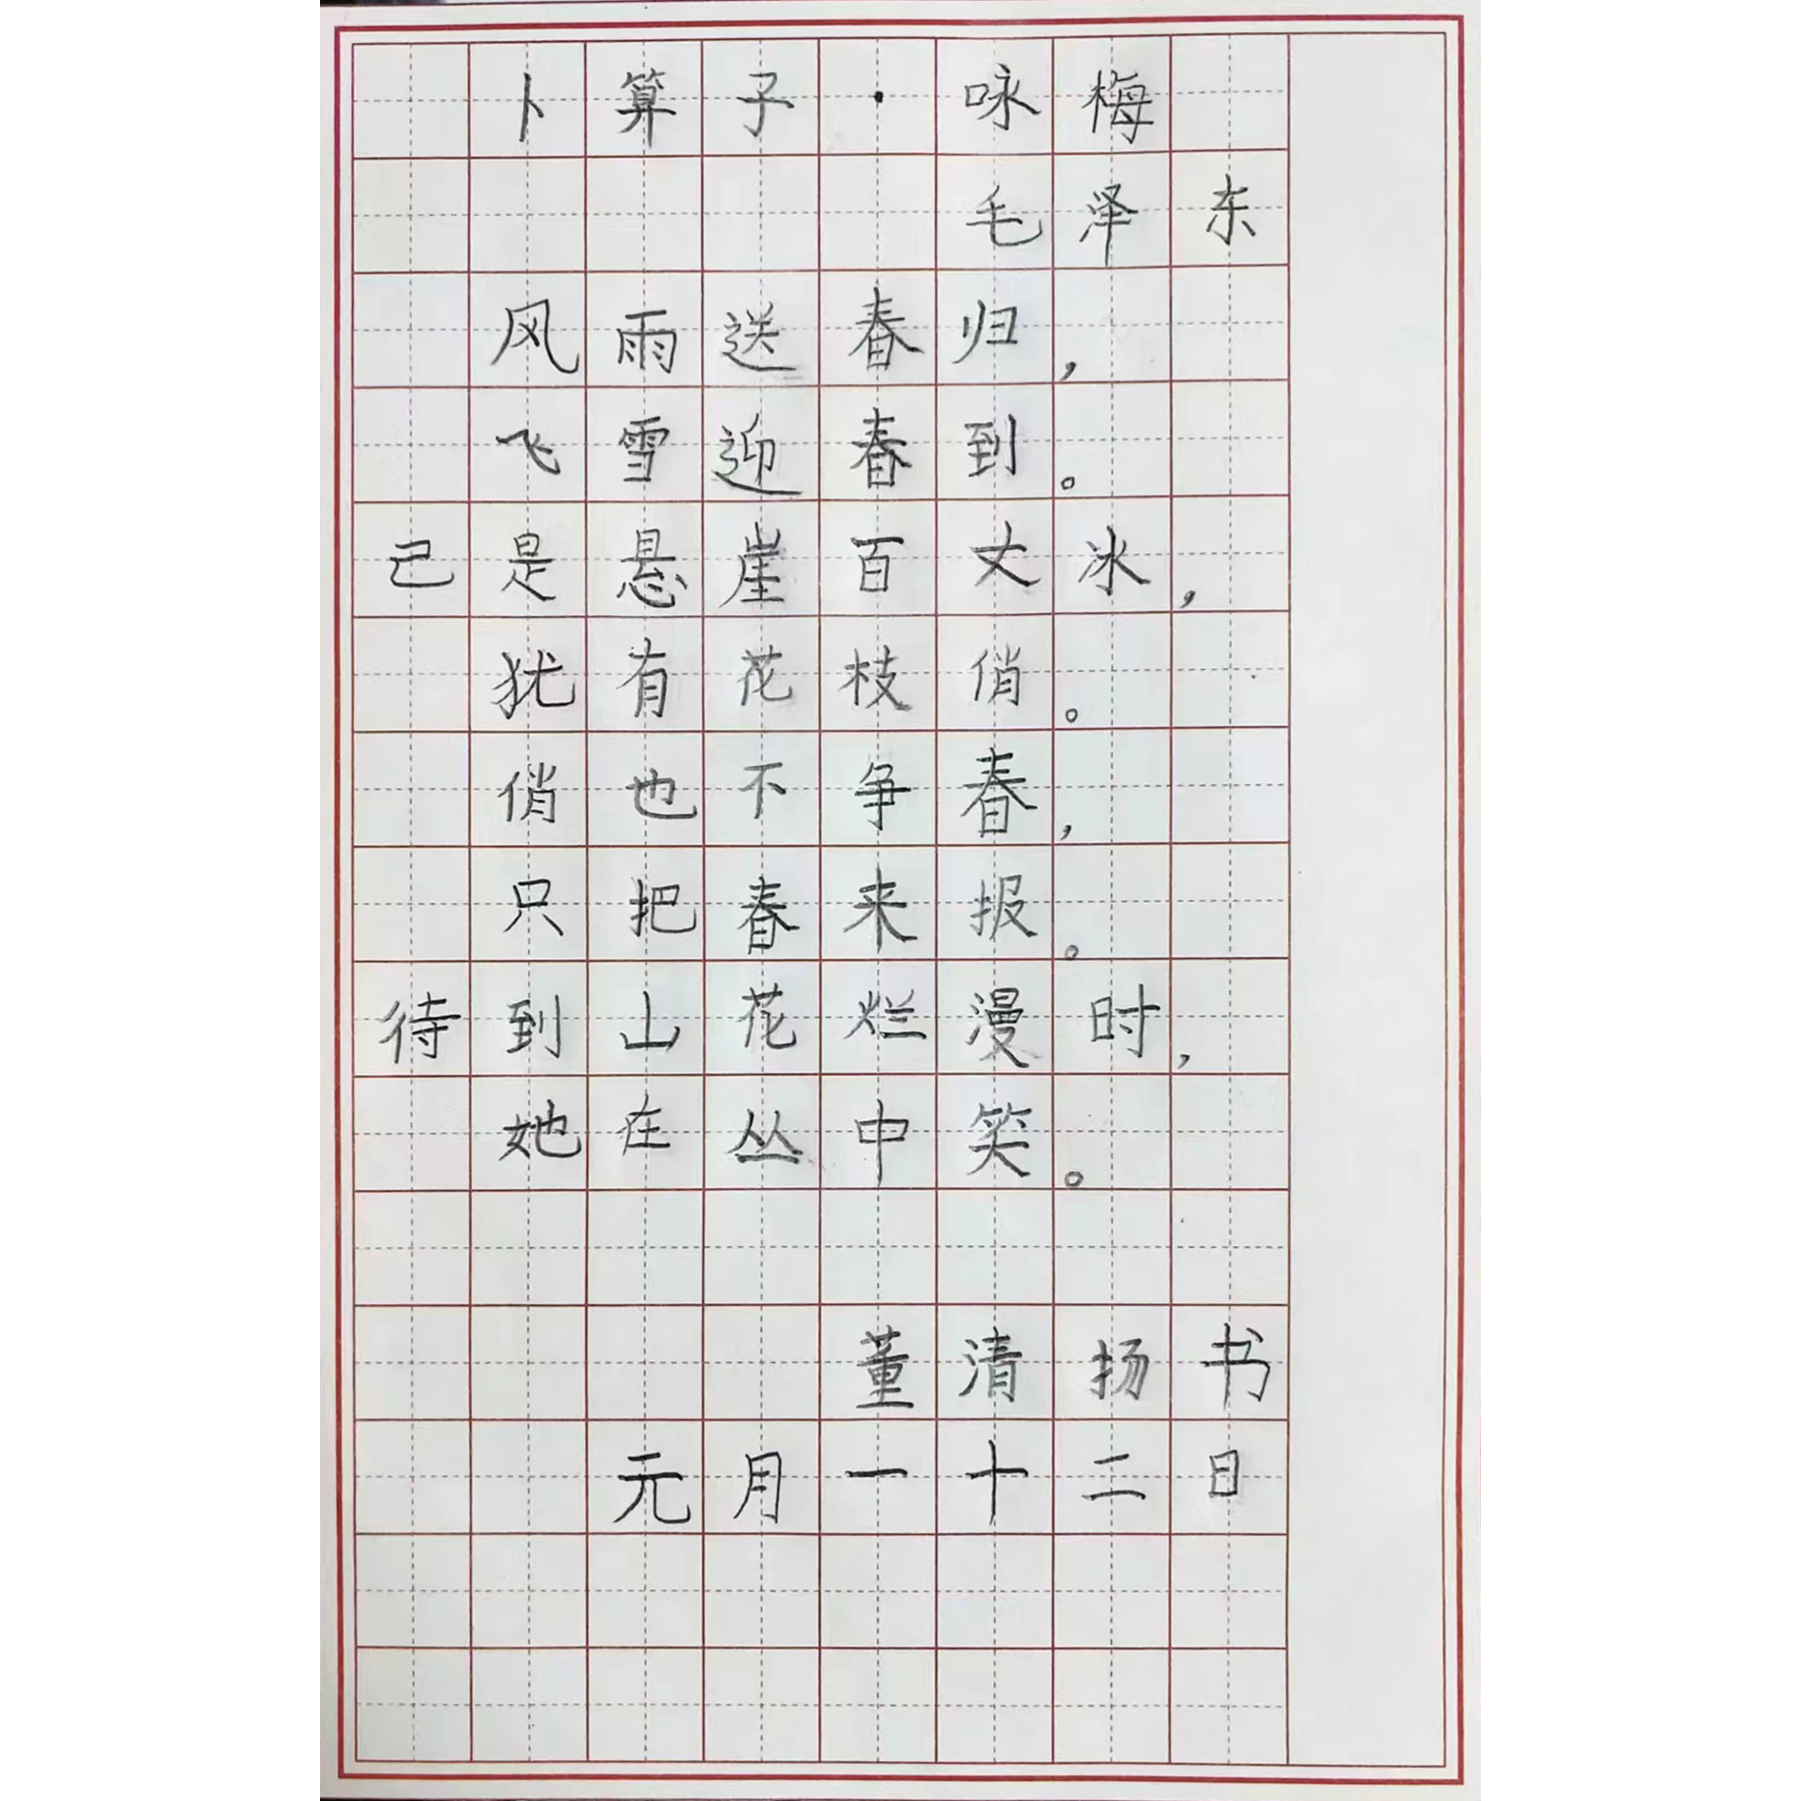 卜算子·咏梅
毛泽东
风雨送春归，
飞雪迎春到。
己是悬崖百丈冰，
犹有花枝俏。
俏也不争春，
只把春来报。
待到山花烂漫时，
她在丛中笑。
董清扬书
元月一十二日